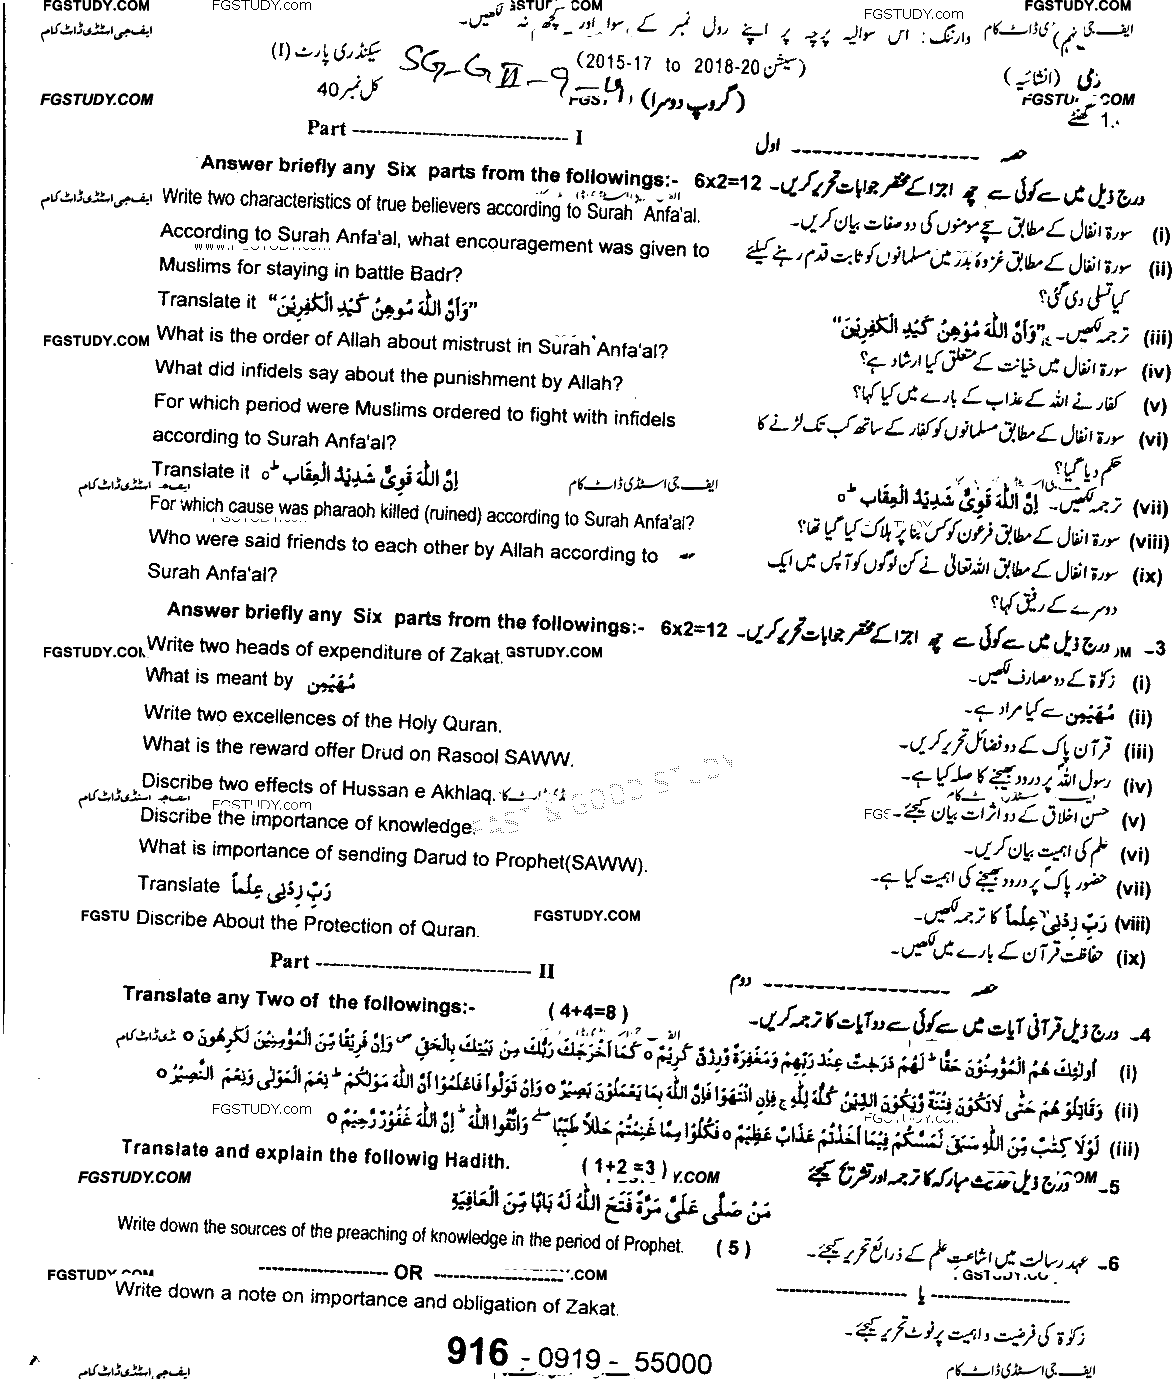 FGSTUDY.COM FGSTUDY.com GSTUDY.COM FGSTUDY.com FGSTUDY.COM
ایف جی اسٹڈی ڈاٹ کام وارننگ: اس سوالیہ پرچہ پر اپنے رول نمبر کے سوا اور کچھ نہ لکھیں۔ ایف جی اسٹڈی ڈاٹ کام
(سیشن 2015-17 to 2018-20) سیکنڈری پارٹ (I)
SG-GII-9-19
(انشائیہ) (گروپ دوسرا) کل نمبر 40
FGSTUDY.COM
Part I حصہ اول
Answer briefly any Six parts from the followings:- 6x2=12 درج ذیل میں سے کوئی سے چھ اجزا کے مختصر جوابات تحریر کریں۔
Write two characteristics of true believers according to Surah Anfa'al. (i) سورۃ انفال کے مطابق سچے مومنوں کی دو صفات بیان کریں۔
According to Surah Anfa'al, what encouragement was given to (ii) سورۃ انفال کے مطابق غزوۂ بدر میں مسلمانوں کو ثابت قدم رہنے کیلئے
Muslims for staying in battle Badr? کیا تسلی دی گئی؟
Translate it "وَاَنَّ اللّٰهَ مُوْهِنُ كَيْدِ الْكٰفِرِيْنَ" (iii) ترجمہ لکھیں۔ "وَاَنَّ اللّٰهَ مُوْهِنُ كَيْدِ الْكٰفِرِيْنَ"
FGSTUDY.COM What is the order of Allah about mistrust in Surah Anfa'al? (iv) سورۃ انفال میں خیانت کے متعلق کیا ارشاد ہے؟
What did infidels say about the punishment by Allah? (v) کفار نے اللہ کے عذاب کے بارے میں کیا کہا؟
For which period were Muslims ordered to fight with infidels (vi) سورۃ انفال کے مطابق مسلمانوں کو کفار کے ساتھ کب تک لڑنے کا
according to Surah Anfa'al? حکم دیا گیا؟
Translate it اِنَّ اللّٰهَ قَوِىٌّ شَدِيْدُ الْعِقَابِ (vii) ترجمہ لکھیں۔ اِنَّ اللّٰهَ قَوِىٌّ شَدِيْدُ الْعِقَابِ
ایف جی اسٹڈی ڈاٹ کام
For which cause was pharaoh killed (ruined) according to Surah Anfa'al? (viii) سورۃ انفال کے مطابق فرعون کو کس بنا پر ہلاک کیا گیا تھا؟
Who were said friends to each other by Allah according to (ix) سورۃ انفال کے مطابق اللہ تعالیٰ نے کن لوگوں کو آپس میں ایک
Surah Anfa'al? دوسرے کے رفیق کہا؟
Answer briefly any Six parts from the followings:- 6x2=12 درج ذیل میں سے کوئی سے چھ اجزا کے مختصر جوابات تحریر کریں۔ -3
Write two heads of expenditure of Zakat. GSTUDY.COM (i) زکوٰۃ کے دو مصارف لکھیں۔
What is meant by مُهَيْمِن (ii) مُهَيْمِن سے کیا مراد ہے۔
Write two excellences of the Holy Quran. (iii) قرآن پاک کے دو فضائل تحریر کریں۔
What is the reward offer Drud on Rasool SAWW. (iv) رسول اللہ پر درود بھیجنے کا صلہ کیا ہے۔
Discribe two effects of Hussan e Akhlaq. (v) حسن اخلاق کے دو اثرات بیان کیجئے۔
FGSTUDY.com
Discribe the importance of knowledge. (vi) علم کی اہمیت بیان کریں۔
What is importance of sending Darud to Prophet(SAWW). (vii) حضور پاک پر درود بھیجنے کی اہمیت کیا ہے۔
Translate رَبِّ زِدْنِى عِلْماً (viii) رَبِّ زِدْنِى عِلْماً کا ترجمہ لکھیں۔
FGSTU Discribe About the Protection of Quran. FGSTUDY.COM (ix) حفاظت قرآن کے بارے میں لکھیں۔
Part II حصہ دوم
Translate any Two of the followings:- (4+4=8) درج ذیل قرآنی آیات میں سے کوئی سے دو آیات کا ترجمہ کریں۔ -4
(i) اُولٰٓئِكَ هُمُ الْمُؤْمِنُوْنَ حَقًّا لَهُمْ دَرَجٰتٌ عِنْدَ رَبِّهِمْ وَمَغْفِرَةٌ وَّرِزْقٌ كَرِيْمٌ كَمَا اَخْرَجَكَ رَبُّكَ مِنْ بَيْتِكَ بِالْحَقِّ وَاِنَّ فَرِيْقًا مِّنَ الْمُؤْمِنِيْنَ لَكٰرِهُوْنَ
(ii) وَقَاتِلُوْ هُمْ حَتّٰى لَاتَكُوْنَ فِتْنَةٌ وَّيَكُوْنَ الدِّيْنُ كُلُّهٗ لِلّٰهِ فَاِنِ انْتَهَوْا فَاِنَّ اللّٰهَ بِمَا يَعْمَلُوْنَ بَصِيْرٌ وَاِنْ تَوَلَّوْا فَاعْلَمُوْا اَنَّ اللّٰهَ مَوْلٰكُمْ نِعْمَ الْمَوْلٰى وَنِعْمَ النَّصِيْرُ
FGSTUDY.com
(iii) لَوْلَا كِتٰبٌ مِّنَ اللّٰهِ سَبَقَ لَمَسَّكُمْ فِيْمَا اَخَذْتُمْ عَذَابٌ عَظِيْمٌ فَكُلُوْا مِمَّا غَنِمْتُمْ حَلٰلًا طَيِّبًا وَاتَّقُوا اللّٰهَ اِنَّ اللّٰهَ غَفُوْرٌ رَّحِيْمٌ
Translate and explain the followig Hadith. (1+2=3) درج ذیل حدیث مبارکہ کا ترجمہ اور تشریح کیجئے -5
FGSTUDY.COM
مَنْ صَلّٰى عَلَىَّ مَرَّةً فَتَحَ اللّٰهُ لَهٗ بَابًا مِّنَ الْعَافِيَةِ
Write down the sources of the preaching of knowledge in the period of Prophet. (5) عہد رسالت میں اشاعت علم کے ذرائع تحریر کیجئے۔ -6
OR یا
Write down a note on importance and obligation of Zakat. زکوٰۃ کی فرضیت و اہمیت پر نوٹ تحریر کیجئے۔
916 - 0919 - 55000
ایف جی اسٹڈی ڈاٹ کام ایف جی اسٹڈی ڈاٹ کام